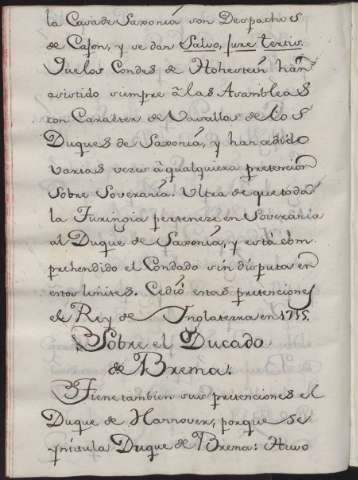 la Casa de Saxonia son Despachos
de Cajon, y se dan Salvo, jure tertis.
Que los Condes de Hohestein han
asistido siempre á las Asambleas
con Carácter de Vasallos de los
Duques de Saxonia, y han cedido
varias veces á qualquiera pretencion
Sobre Soverania. Ultra de que toda
la Turingia pertenece en Soverania
al Duque de Saxonia, y está com
prehendido el Condado sin disputa en
estos limites. Cedió estas pretenciones
el Rey de Inglaterra en 1715.
Sobre el Ducado
de Brema.
Tiene tambien sus pretenciones el
Duque de Hannover, porque se
yntitula Duque de Brema: Huvo